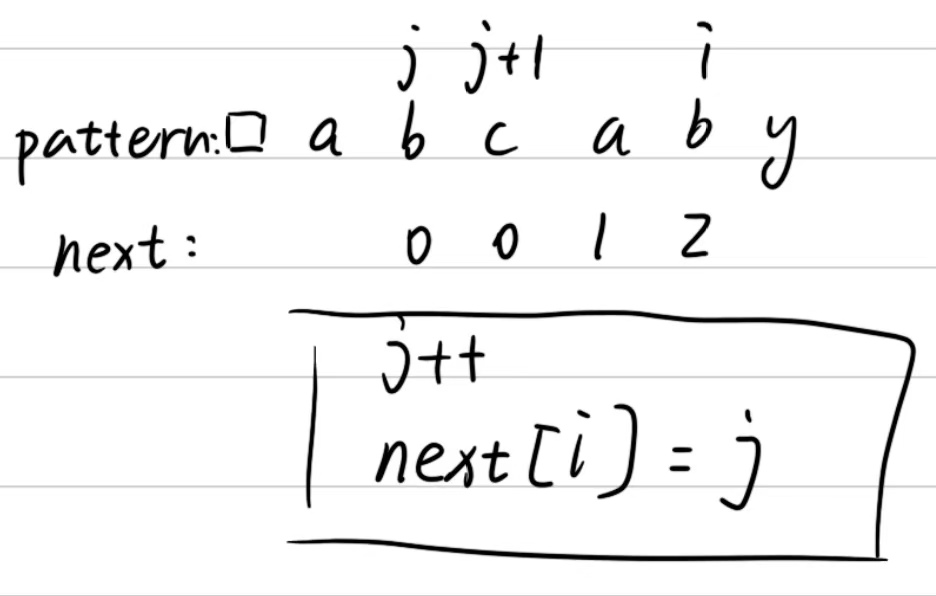 j j+1 i
pattern:□ a b c a b y
next: 0 0 1 2
j++
next[i] = j